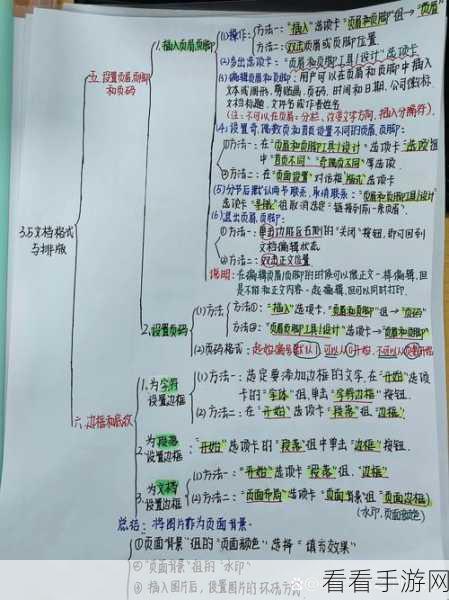 1.插入页眉页脚
(1)操作: 方法一:"插入"选项卡"页眉和页脚"组→"页眉"
方法二:双击页眉或页脚位置
(2)多出选项卡:"页眉和页脚工具|设计"选项卡
五.设置页眉,页脚
和页码
(3)编辑页眉和页脚:用户可以在页眉和页脚中插入
文本或图形,页码,时间和日期,公司徽标
文档标题,文件名或作者姓名
(注:不可以在页眉:分栏、改变文字方向,插入分隔符).
(4)设置奇,偶数页和首页设置不同的页眉,页脚:
①方法一:在"页眉和页脚工具|设计"选项卡"选项"组
中"首页不同""奇偶页不同"等选项
②方法二:在"页面设置"对话框,版式"选项卡
(5)分节后默认两节联系,取消联系:"页眉和页脚工具|设计"
选项卡"导航"组取消选定"链接到前一条页眉"
3.5文档格式
与排版
(6)退出页眉.页脚:
①方法一:单击功能区右侧的"关闭"按钮,即可回到
文档编辑状态
②方法二:双击正文位置
说明:在编辑页眉/页脚的时候可以像正文一样编辑,但
是不能和正文内容一起编辑,但可以同时打印.
2.设置页码
(1)方法: 方法①:"插入"选项卡,"页眉和页脚"组→"页码"
方法②:"页眉页脚工具|设计"选项卡→"页眉和页脚"
(2)页码格式:起始编号默认1,可以从0开始,不可以从负数开始
六.边框和底纹
1.为字符
设置边框
(1)方法一:选定要添加边框的文字,在"开始"选项
卡的"字体"组,单击"字符边框"按钮.
(2)方法二:在"开始"选项卡"段落"组,"边框"
2.为段落
设置边框
:"开始"选项卡的"段落"组中单击"边框"按钮.
3.为文档
设置边框
(1)方法一:"开始"选项卡"段落"组,"边框"
(2)方法二:"页面布局"选项卡"页面背景"组"页面边框)
(水印,页面颜色)
总结:将图片作为页面背景.
①"页面背景"组的"页面颜色"选择"填充效果"
②"页面背景"组的"水印"
③插入图片后,设置图片的环绕方式
看看手游网